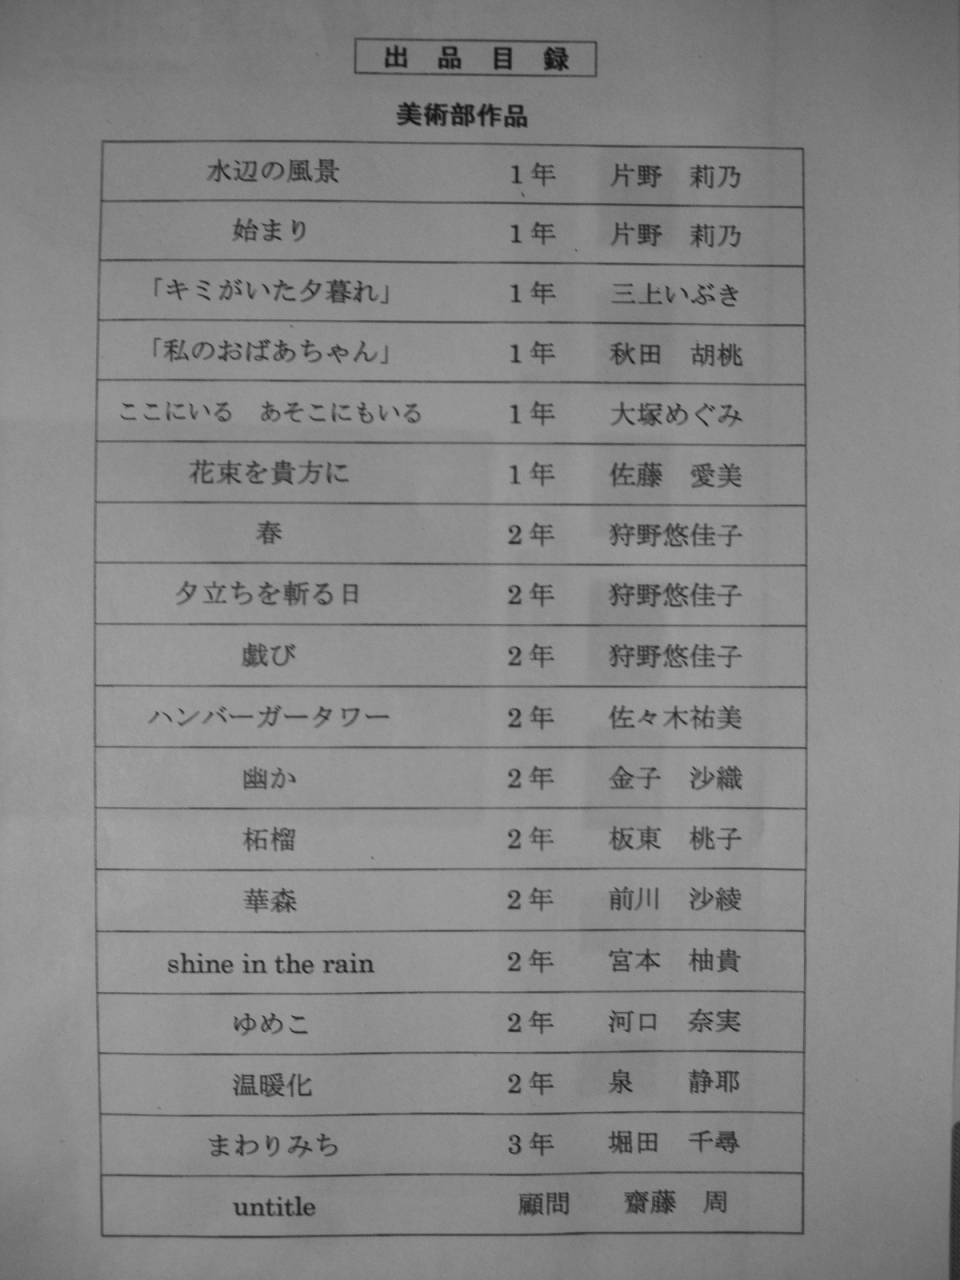 出品目録
美術部作品
水辺の風景 1年 片野 莉乃
始まり 1年 片野 莉乃
「キミがいた夕暮れ」 1年 三上いぶき
「私のおばあちゃん」 1年 秋田 胡桃
ここにいる あそこにもいる 1年 大塚めぐみ
花束を貴方に 1年 佐藤 愛美
春 2年 狩野悠佳子
夕立ちを斬る日 2年 狩野悠佳子
戯び 2年 狩野悠佳子
ハンバーガータワー 2年 佐々木祐美
幽か 2年 金子 沙織
柘榴 2年 板東 桃子
華森 2年 前川 沙綾
shine in the rain 2年 宮本 柚貴
ゆめこ 2年 河口 奈実
温暖化 2年 泉 静耶
まわりみち 3年 堀田 千尋
untitle 顧問 齋藤 周